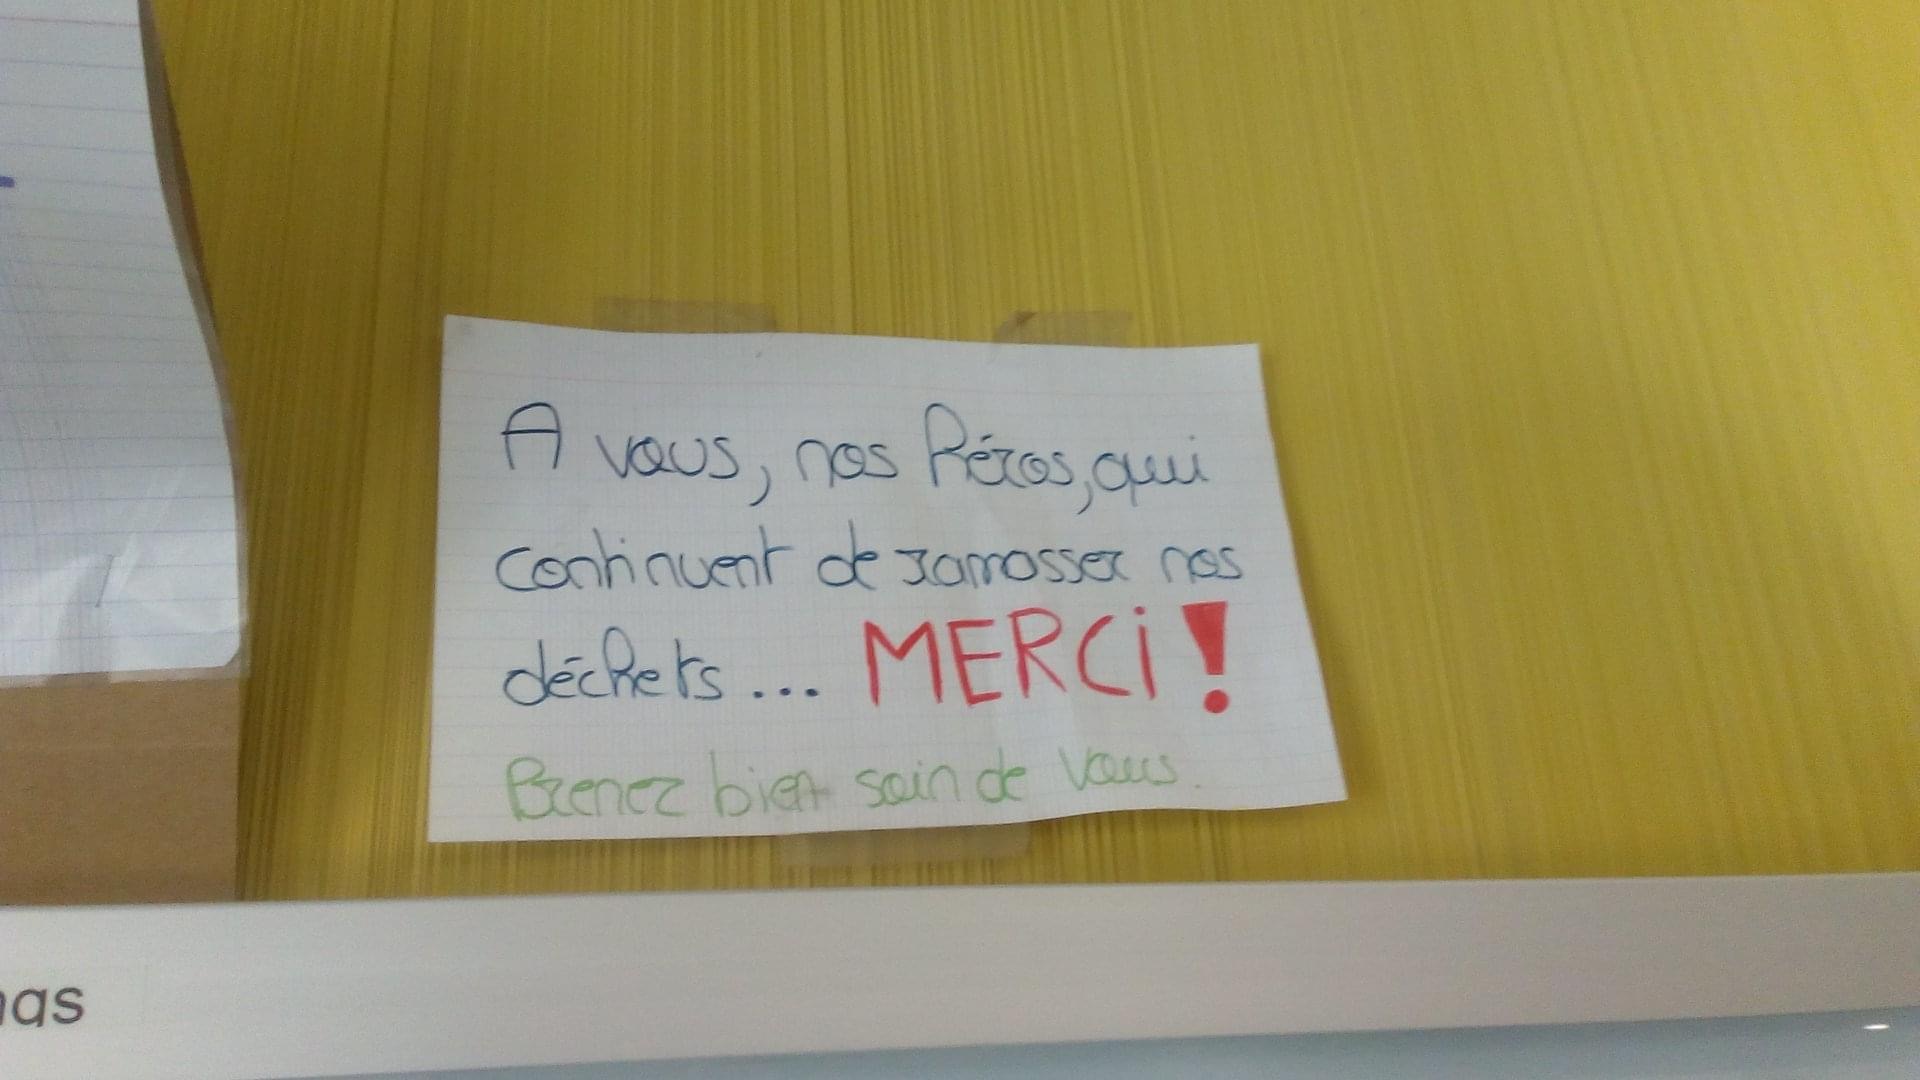 A vous, nos héros, qui
continuent de ramasser nos
déchets... MERCi !
Prenez bien soin de vous.